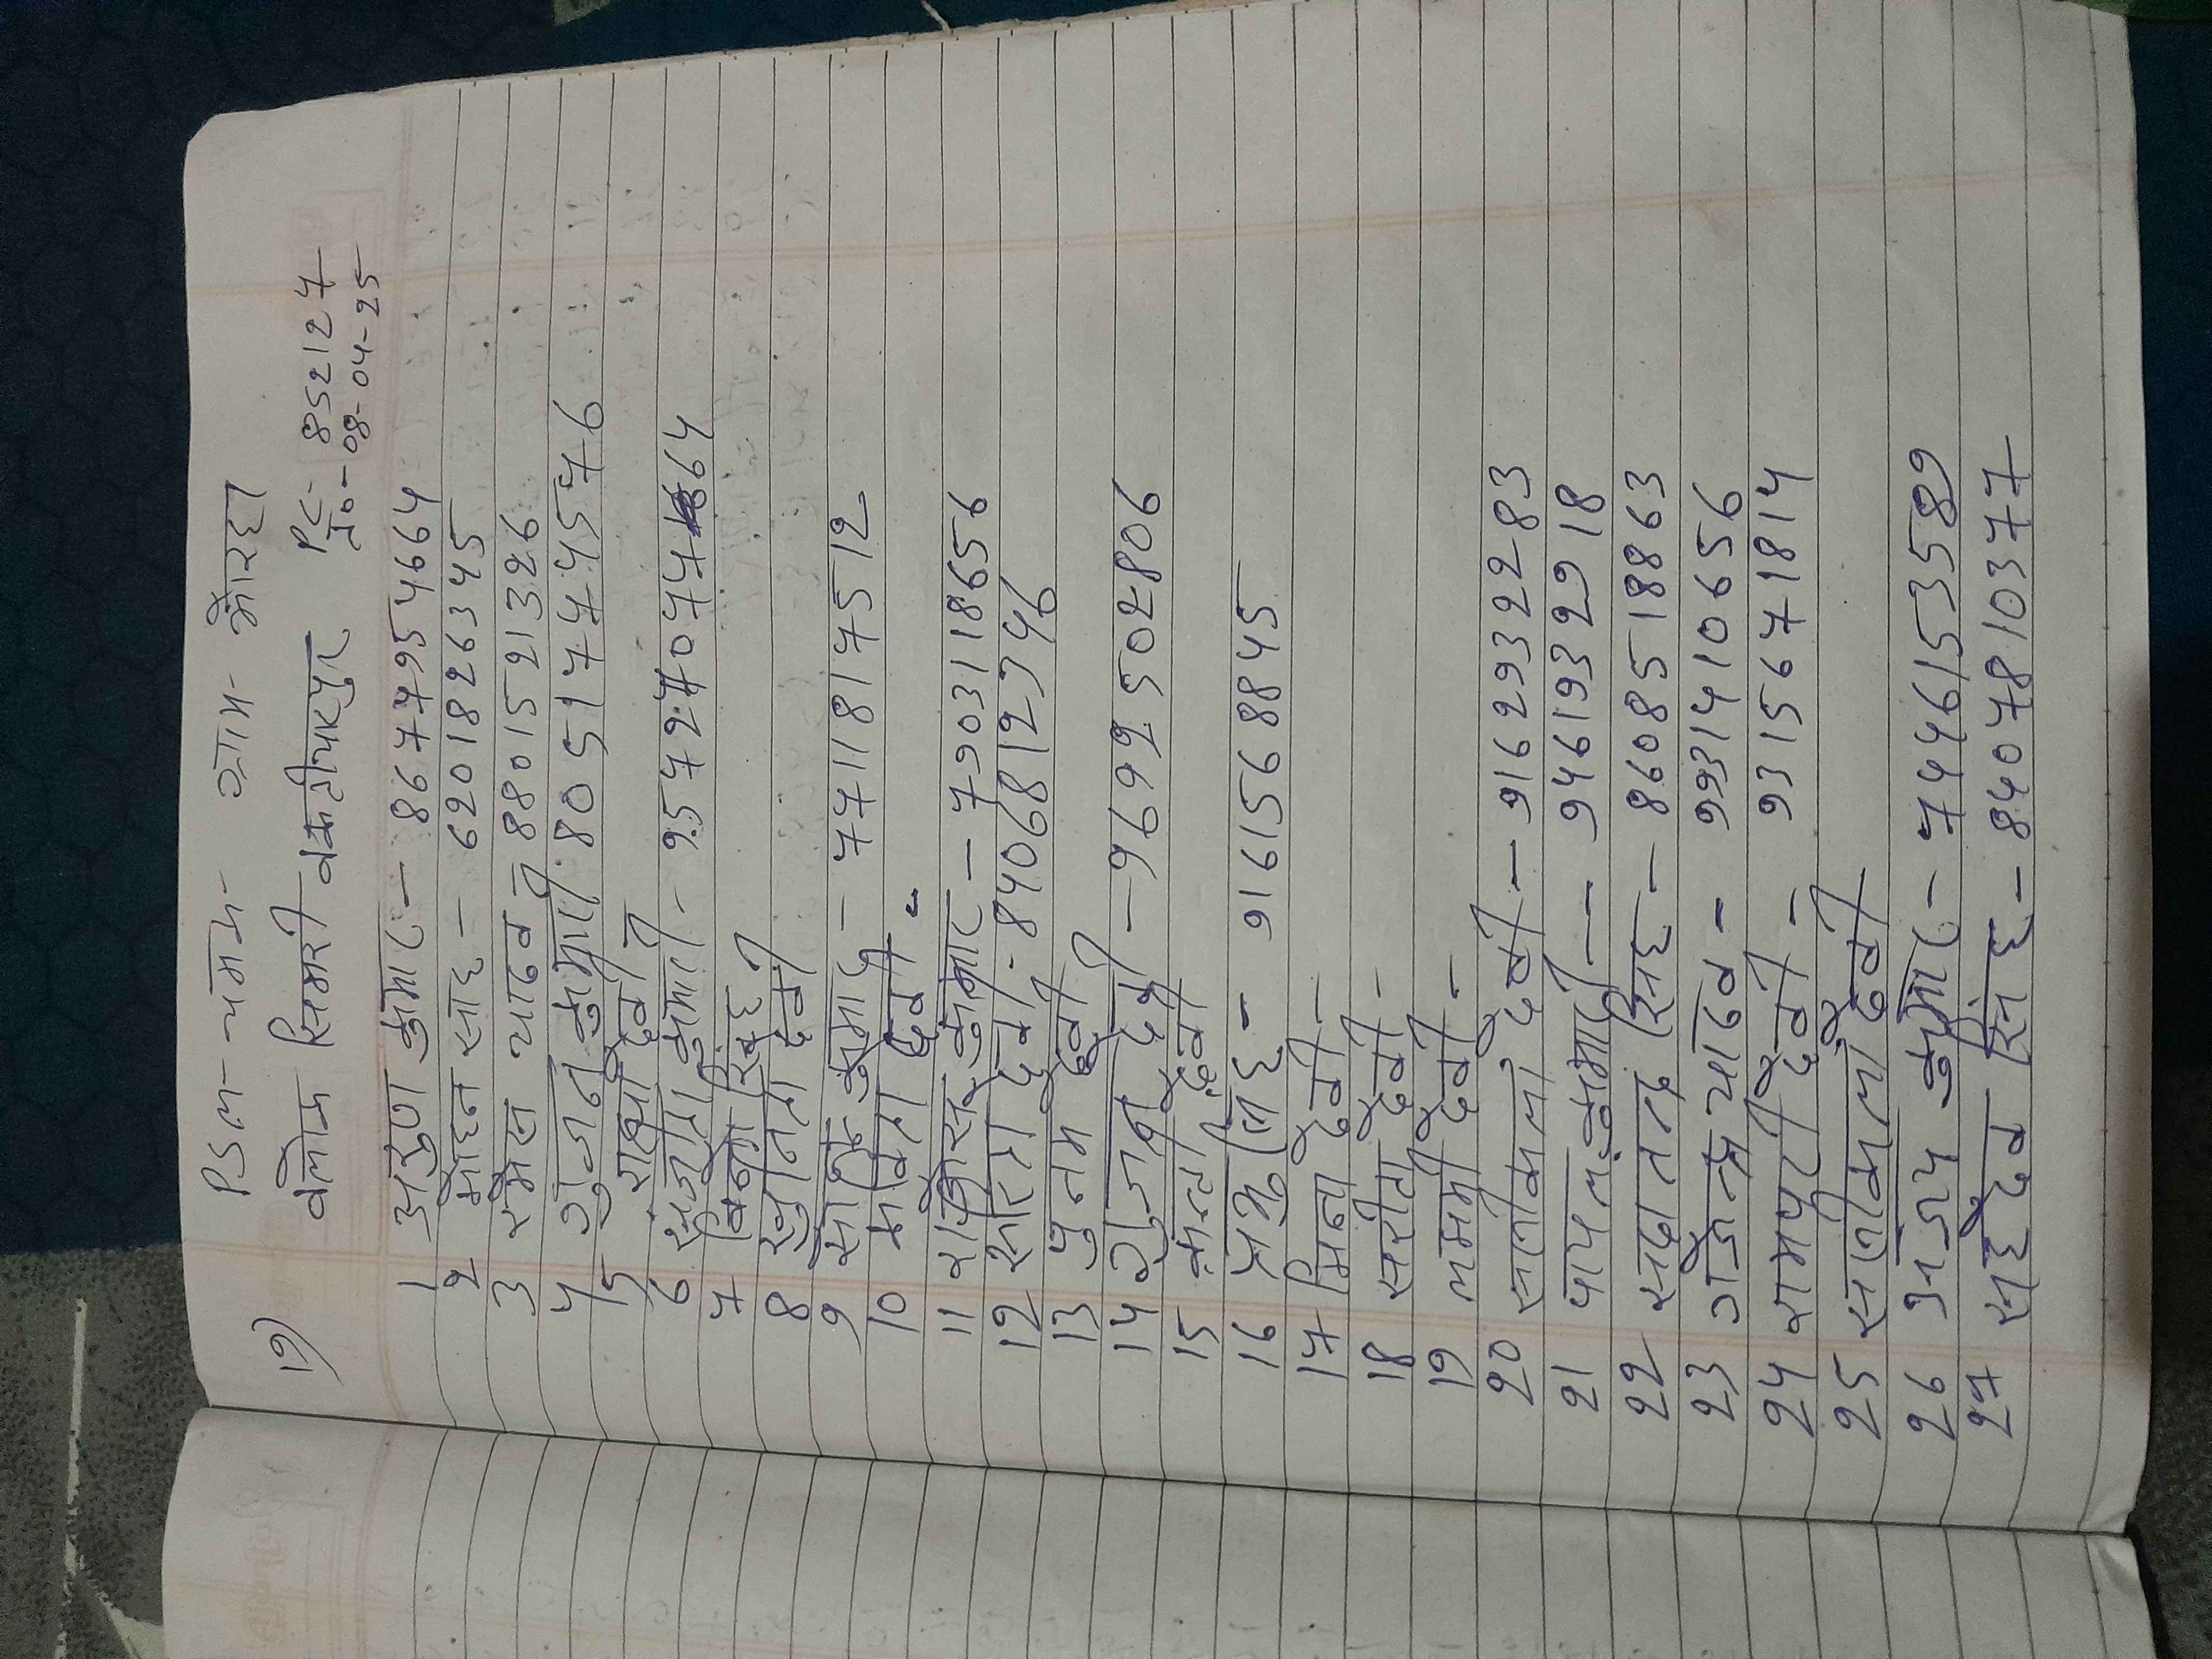 19) PSM - पंचम - ग्राम - भौरहा
वलौक सिमरी वकतीयारपुर PC- 852127
दि०-08-04-25
1 अरुण कुमार - 8677954664
2 मोहन साह - 6201826345
3 रमेस यादव - 8801521326
4 गुंजन कुमारी 8051774576
5 राधा देवी
6 सुजाता कुमारी - 9572707764
7 विना सिंह
8 सुनिता देवी
9 सोनु कुमार - 7711817512
10 कविता देवी -
11 राकेस कुमार - 7903118656
12 सरिता देवी - 8406812746
13 पुनम देवी
14 गुंजन देवी - 9692502806
15 कान्ती देवी
16 प्रभु साह - 9161568845
17 मिना देवी -
18 सरीता देवी -
19 ममी देवी -
20 सलोकमा देवी - 9162932283
21 पायल कुमारी - 9461932918
22 सदानन्द सिंह - 8608518863
23 गजेन्द्र यादव - 9931410656
24 रामपरी देवी - 931567 1814
25 सलोकमा देवी
26 अजय कुमार - 7461535 89
27 सहदेव सिंह - 8407810377